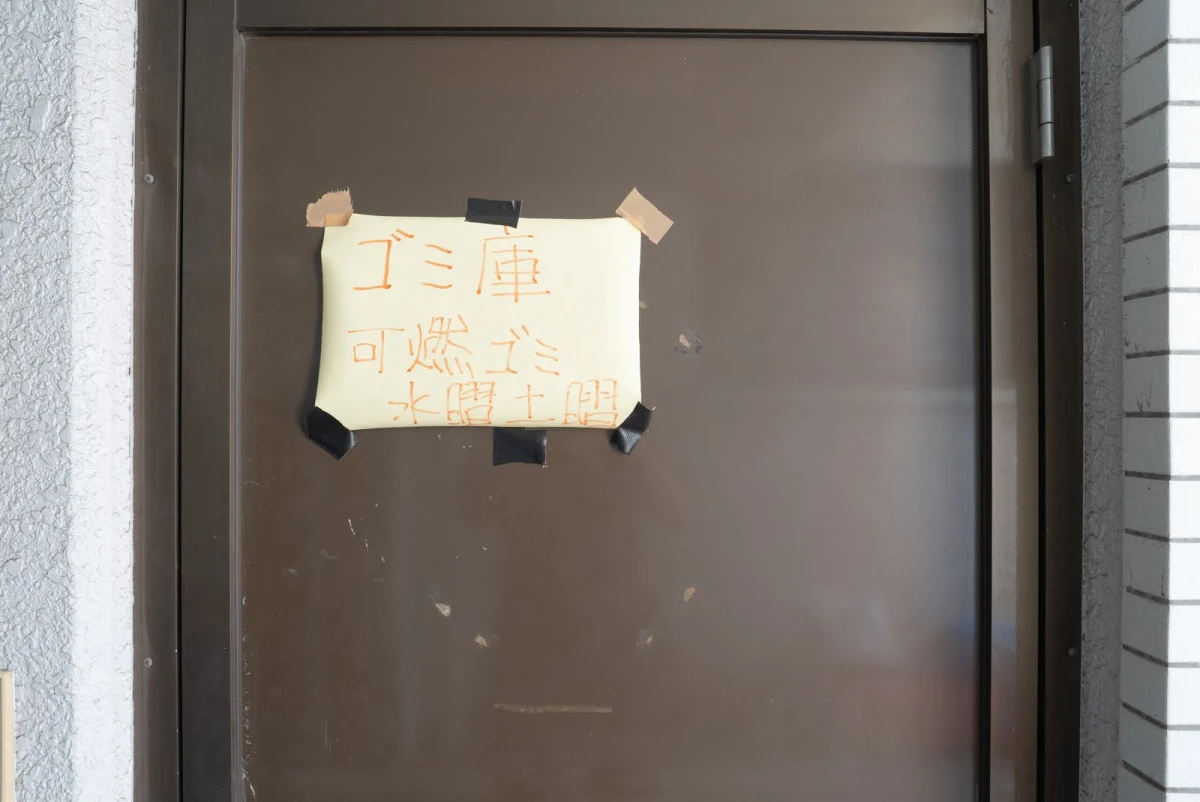 ゴミ庫
可燃ゴミ
水曜土曜